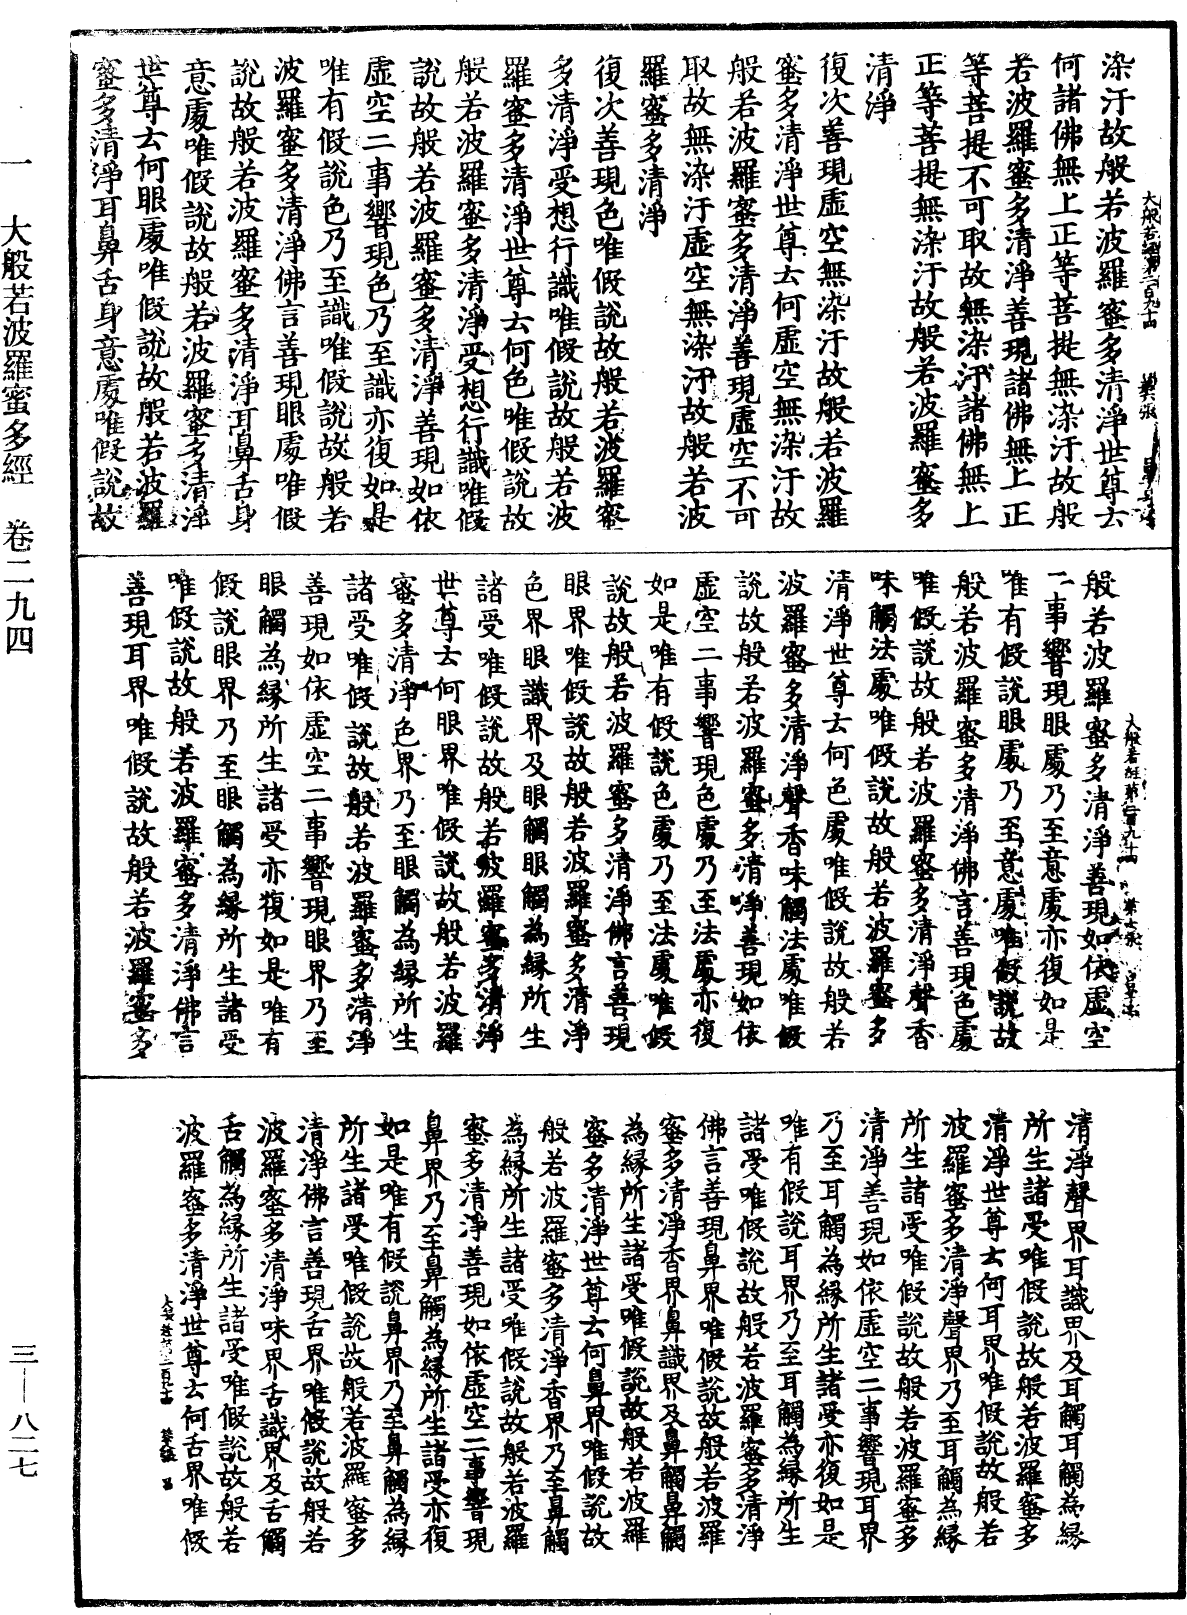 染汙故般若波羅蜜多清淨世尊云
何諸佛無上正等菩提無染汙故般
若波羅蜜多清淨善現諸佛無上正
等菩提不可取故無染汙諸佛無上
正等菩提無染汙故般若波羅蜜多
清淨
復次善現虛空無染汙故般若波羅
蜜多清淨世尊云何虛空無染汙故
般若波羅蜜多清淨善現虛空不可
取故無染汙虛空無染汙故般若波
羅蜜多清淨
復次善現色唯假說故般若波羅蜜
多清淨受想行識唯假說故般若波
羅蜜多清淨世尊云何色唯假說故
般若波羅蜜多清淨受想行識唯假
說故般若波羅蜜多清淨善現如依
虛空二事響現色乃至識亦復如是
唯有假說色乃至識唯假說故般若
波羅蜜多清淨佛言善現眼處唯假
說故般若波羅蜜多清淨耳鼻舌身
意處唯假說故般若波羅蜜多清淨
世尊云何眼處唯假說故般若波羅
蜜多清淨耳鼻舌身意處唯假說故
般若波羅蜜多清淨善現如依虛空
二事響現眼處乃至意處亦復如是
唯有假說眼處乃至意處唯假說故
般若波羅蜜多清淨佛言善現色處
唯假說故般若波羅蜜多清淨聲香
味觸法處唯假說故般若波羅蜜多
清淨世尊云何色處唯假說故般若
波羅蜜多清淨聲香味觸法處唯假
說故般若波羅蜜多清淨善現如依
虛空二事響現色處乃至法處亦復
如是唯有假說色處乃至法處唯假
說故般若波羅蜜多清淨佛言善現
眼界唯假說故般若波羅蜜多清淨
色界眼識界及眼觸眼觸為緣所生
諸受唯假說故般若波羅蜜多清淨
世尊云何眼界唯假說故般若波羅
蜜多清淨色界乃至眼觸為緣所生
諸受唯假說故般若波羅蜜多清淨
善現如依虛空二事響現眼界乃至
眼觸為緣所生諸受亦復如是唯有
假說眼界乃至眼觸為緣所生諸受
唯假說故般若波羅蜜多清淨佛言
善現耳界唯假說故般若波羅蜜多
清淨聲界耳識界及耳觸耳觸為緣
所生諸受唯假說故般若波羅蜜多
清淨世尊云何耳界唯假說故般若
波羅蜜多清淨聲界乃至耳觸為緣
所生諸受唯假說故般若波羅蜜多
清淨善現如依虛空二事響現耳界
乃至耳觸為緣所生諸受亦復如是
唯有假說耳界乃至耳觸為緣所生
諸受唯假說故般若波羅蜜多清淨
佛言善現鼻界唯假說故般若波羅
蜜多清淨香界鼻識界及鼻觸鼻觸
為緣所生諸受唯假說故般若波羅
蜜多清淨世尊云何鼻界唯假說故
般若波羅蜜多清淨香界乃至鼻觸
為緣所生諸受唯假說故般若波羅
蜜多清淨善現如依虛空二事響現
鼻界乃至鼻觸為緣所生諸受亦復
如是唯有假說鼻界乃至鼻觸為緣
所生諸受唯假說故般若波羅蜜多
清淨佛言善現舌界唯假說故般若
波羅蜜多清淨味界舌識界及舌觸
舌觸為緣所生諸受唯假說故般若
波羅蜜多清淨世尊云何舌界唯假
一 大般若波羅蜜多經 卷二九四
三—八二七